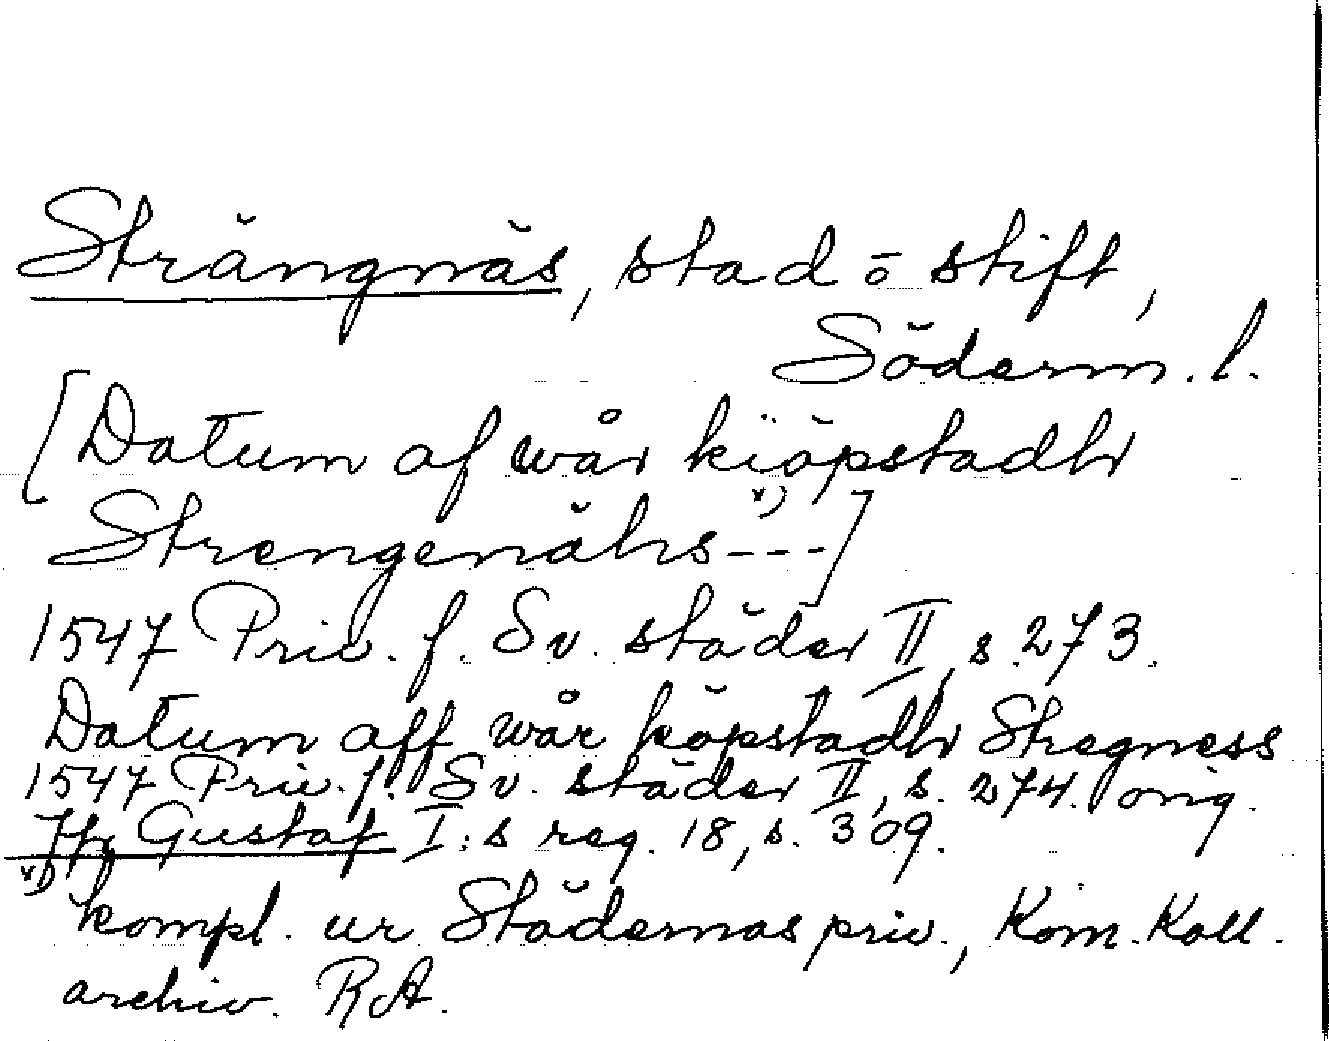 Strängnäs, stad o stift,
Söderm. l.
[Datum af wår kiöpstadh
Strengenähs x) ---]
1547 Priv. f. Sv. städer II, s. 273.
Datum aff wår köpstadh Stregness
1547 Priv. f. Sv. städer II, s. 274. orig.
Jfr Gustaf I:s reg. 18, s. 309.
x) kompl. ur Städernas priv., Kom. Koll.
archiv. RA.